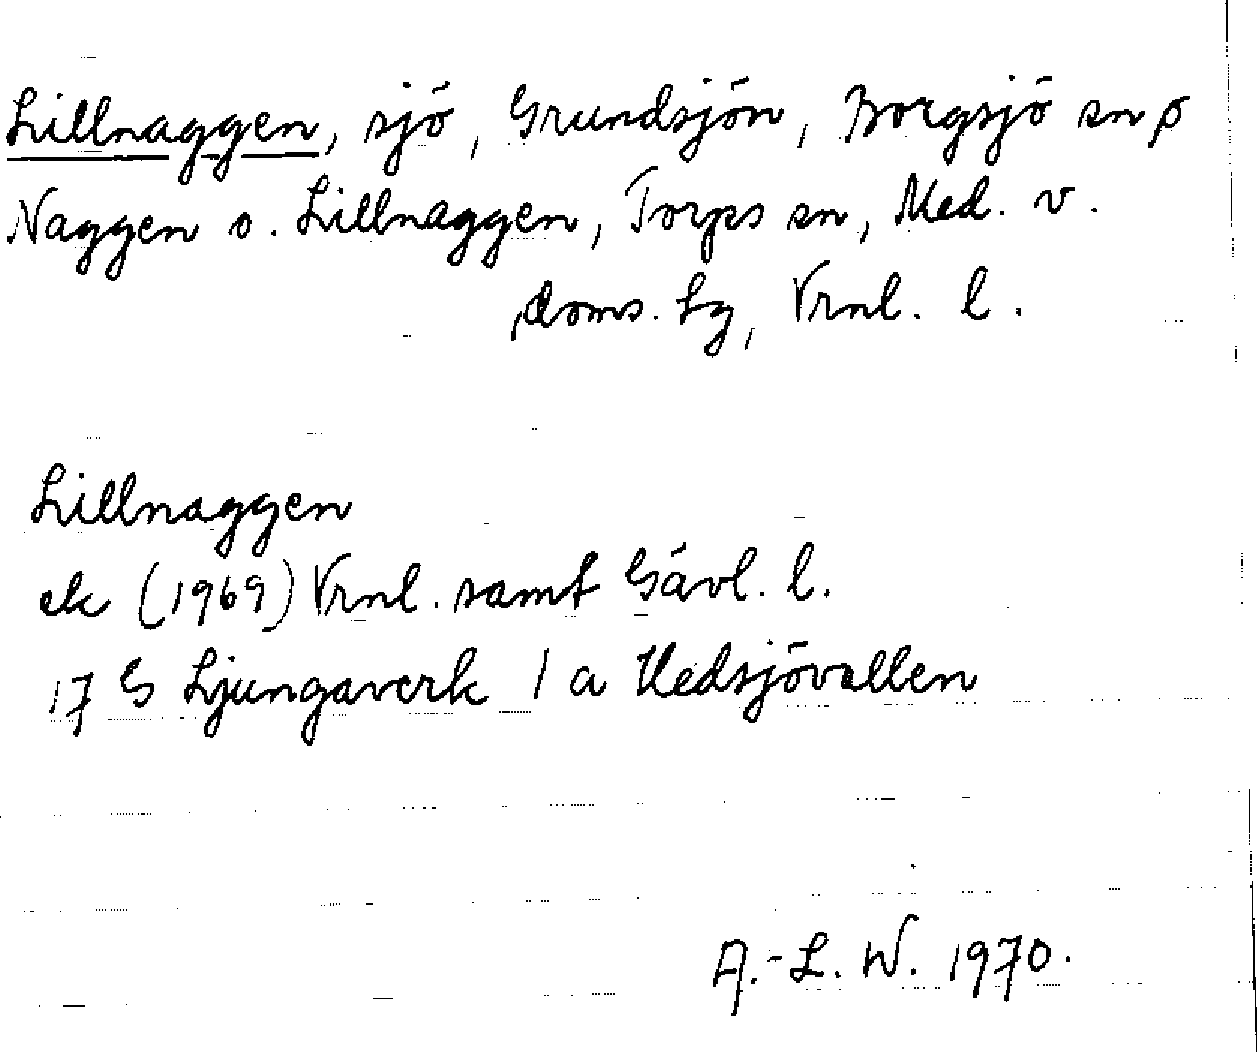 Lillnaggen, sjö, Grundsjön, Borgsjö sn o
Naggen o. Lillnaggen, Torps sn, Med. v.
doms. hg, Vrnl. l.
Lillnaggen
ek (1969) Vrnl. samt Gävl. l.
17 G Ljungaverk 1 a Hedsjövallen
A.-L. W. 1970.